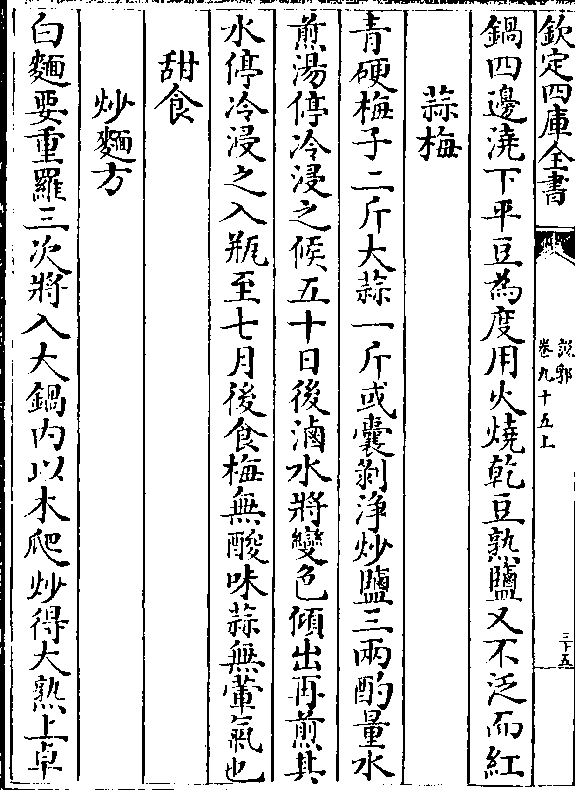 欽定四庫全書
說郛
卷九十五上
三十五
鍋四邊澆下平豆為度用火燒乾豆熟鹽又不泛而紅
蒜梅
青硬梅子二斤大蒜一斤或囊剥淨炒鹽三兩酌量水
煎湯停冷浸之候五十日後滷水將變色傾出再煎其
水停冷浸之入瓶至七月後食梅無酸味蒜無葷氣也
甜食
炒麵方
白麵要重羅三次將入大鍋内以木爬炒得大熟上卓